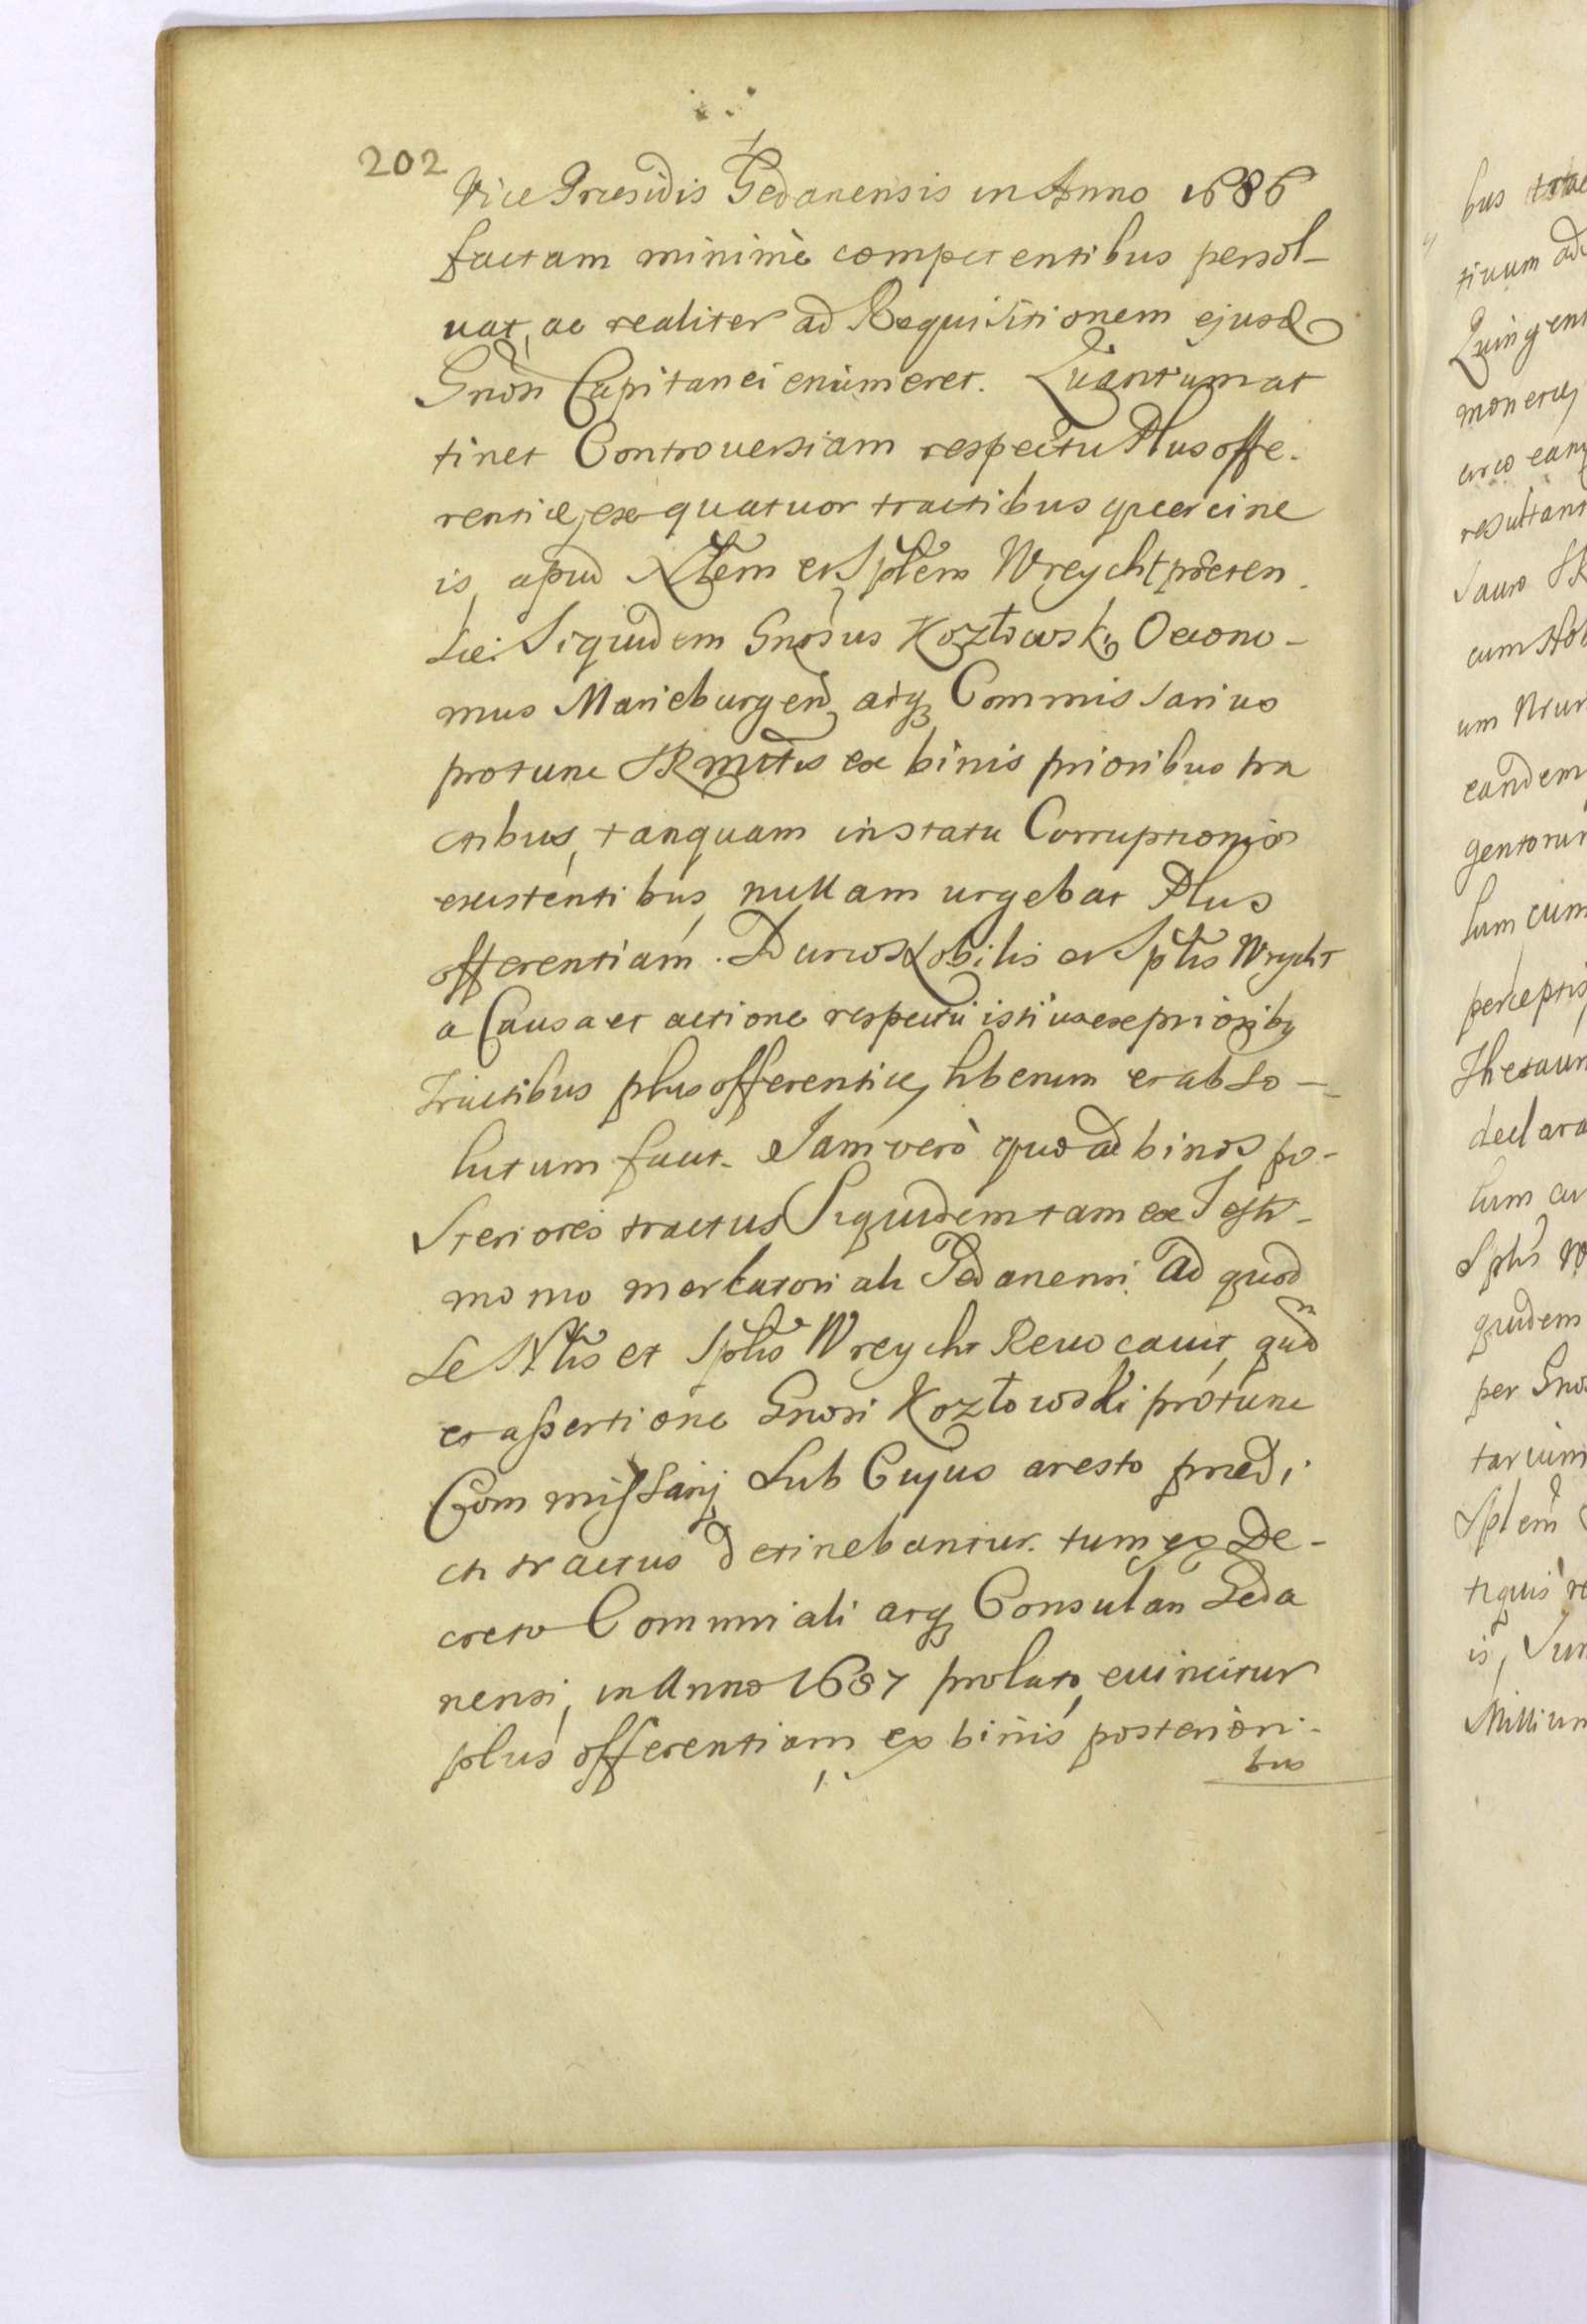 202
Vice Præsidis Gedanensis in Anno 1686
factam minimè competentibus persol-
uat, ac realiter ad Requisitionem ejusd
Gnosi Capitanei enumeret. Quantum at
tinet Controversiam respectu Plus offe-
rentiæ, ex quatuor tractibus quercine
is, apud Nblem et Spblem Wreycht præten
sæ: Siquidem Gnosus Kozłowski Oecono-
mus Marieburgen, atq Commissarius
protunc SRMttis ex binis prioribus tra
ctibus, tanquam in statu Corruptionis
existentibus, nullam urgebat Plus
offerentiam. Nobilis et Spblis Wrycht
a Causa et actione respectu istius ex prioribq
tractibus plus offerentiæ, liberum et abso-
lutum facit. Jam verò quo ad binos po-
steriores tractus Siquidem tam ex Testi-
monio mercatoriali Gedanensi. Ad quod
se Nblis et Spblis Wreycht Revocavit, quàm
ex assertione Gnosi Kozłowski protunc
Commissarij Sub Cujus aresto prædi
cti tractus detinebantur. tum ex De-
creto Commissiali atq Consulari Geda
nensi, in Anno 1687 prolato, euincitur
plus offerentiam ex binis posteriori-
bus
bus
tiuum
Quingent
monetæ
circo eam
resultant
Sauro SR
cum Nob
um
eandem
gentorum
sum cum
perceptis
Thesaur
declara
Spblis
quidem
per Gnos
tarium
Spblem
tiquis
is, Sum
Millium